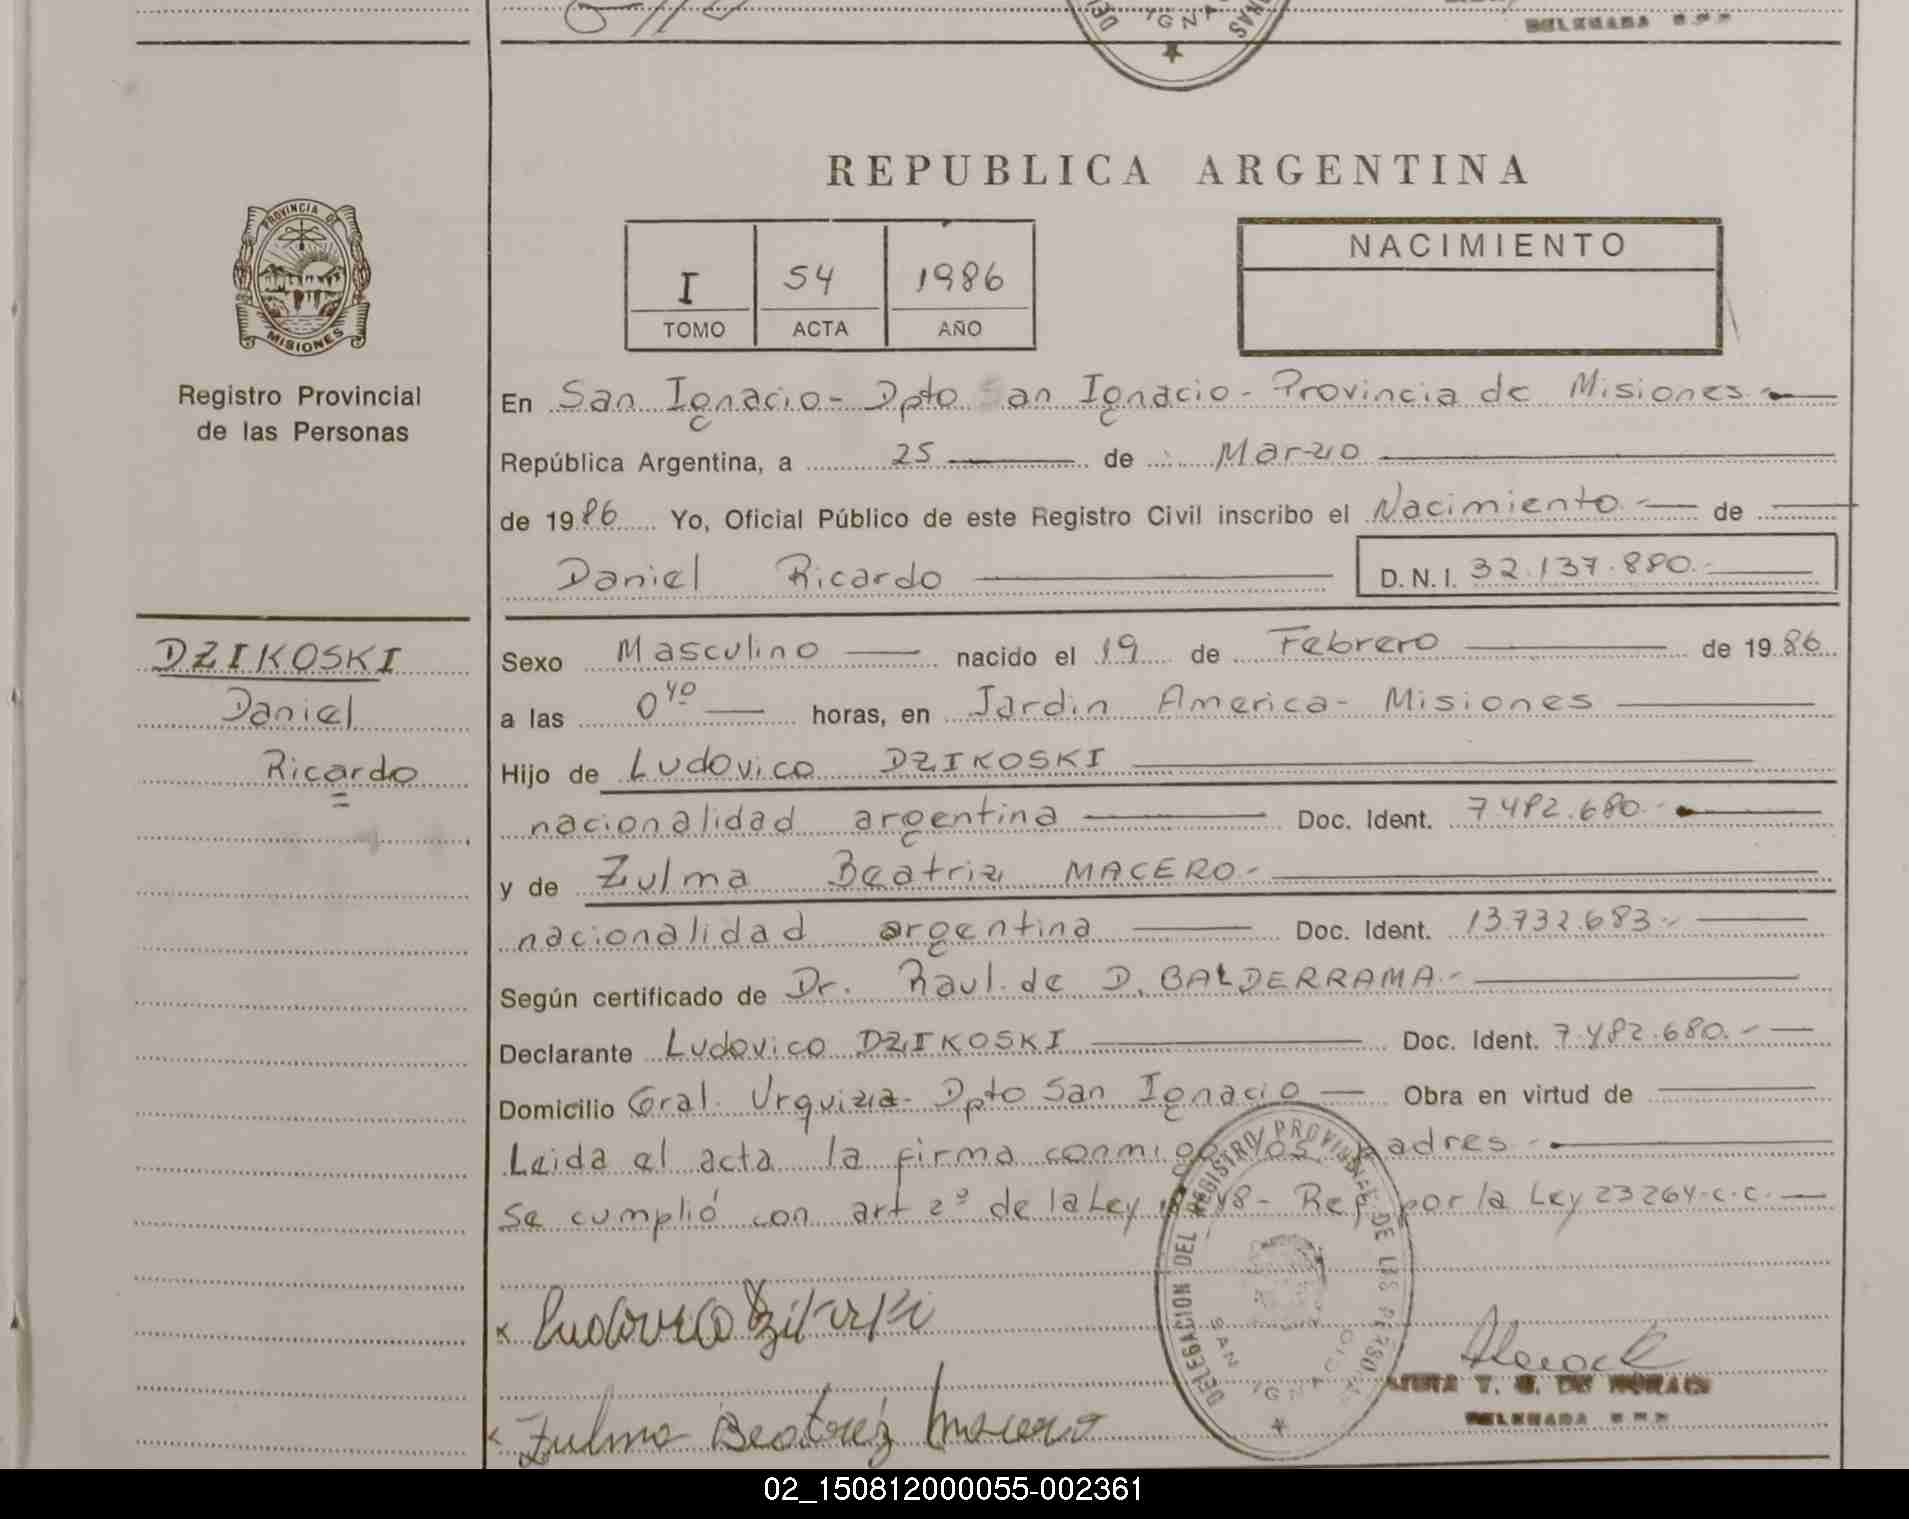 IGNA
DELEGADA R.P.P.
REPUBLICA ARGENTINA
PROVINCIA DE
MISIONES
Registro Provincial
de las Personas
I 54 1986
TOMO ACTA AÑO
NACIMIENTO
En San Ignacio - Dpto San Ignacio - Provincia de Misiones
República Argentina, a 25 de Marzo
de 1986 Yo, Oficial Público de este Registro Civil inscribo el Nacimiento de
Daniel Ricardo D.N.I. 32.137.880.-
DZIKOSKI
Daniel
Ricardo
Sexo Masculino nacido el 19 de Febrero de 1986
a las 0 40 horas, en Jardin America - Misiones
Hijo de Ludovico DZIKOSKI
nacionalidad argentina Doc. Ident. 7.482.680.-
y de Zulma Beatriz MACERO.-
nacionalidad argentina Doc. Ident. 13.732.683.-
Según certificado de Dr. Raul de D. BALDERRAMA.-
Declarante Ludovico DZIKOSKI Doc. Ident. 7.482.680.-
Domicilio Gral. Urquiza - Dpto San Ignacio Obra en virtud de
Leida el acta la firma conmigo los padres.-
Se cumplió con art 2º de la Ley - Ref por la Ley 23264. c.c.-
DELEGACION DEL REGISTRO PROVINCIAL DE LAS PERSONAS
SAN IGNACIO
x Ludovico Dzikoski
x Zulma Beatriz Macero
DELEGADA R.P.P.
02_150812000055-002361